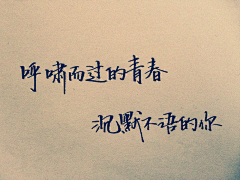 呼啸而过的青春
沉默不语的你